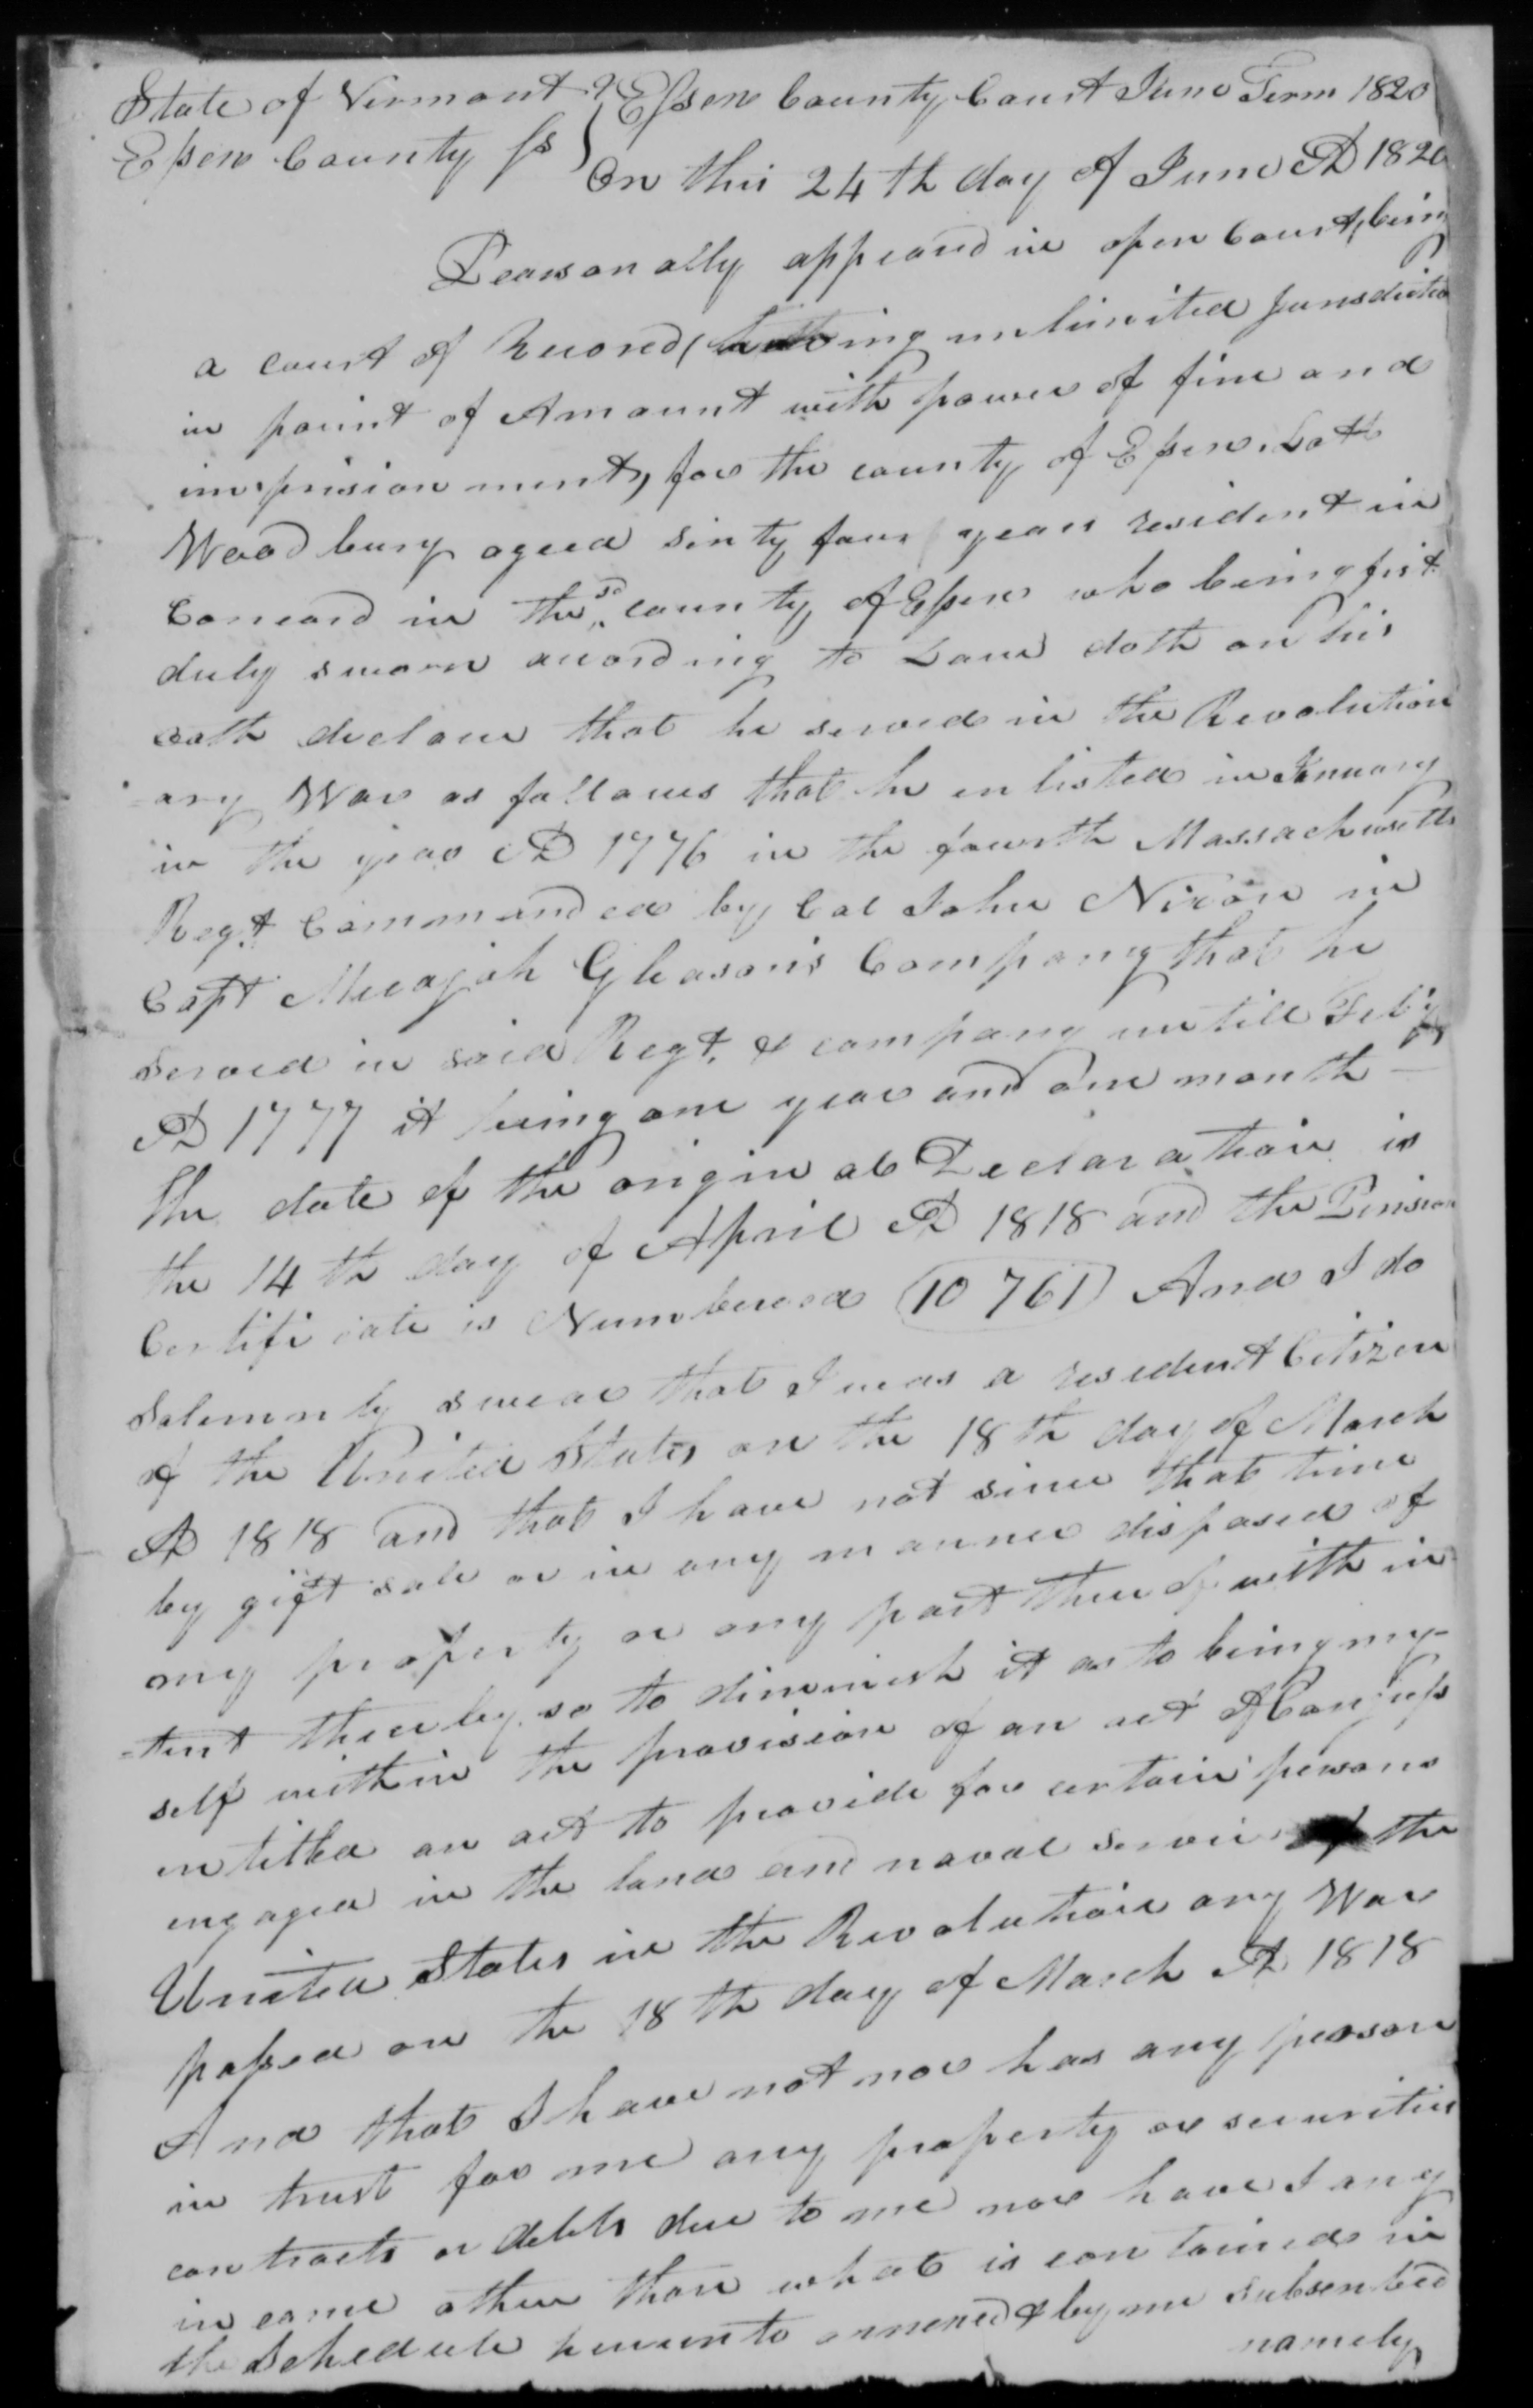 State of Vermont } Essex County Court June Term 1820
Essex County ss
On this 24th day of June AD 1820
Pearsonally appeard in open Court, being
a court of Record, having unlimited Jurisdiction
in point of Amount with power of fine and
imprisionment, for the county of Essex. Lott
Woodbury aged sixty four years resident in
Concord in the sd county of Essex who being first
duly sworn according to Law doth on his
oath declare that he served in the Revolution
ary War as follows that he enlisted in January
in the year AD 1776 in the fourth Massachusetts
Regt. Commanded by Col John Nixon in
Capt Micajah Gleason's Company that he
served in said Regt. & company untill Feby
AD 1777 it being one year and one month —
The date of the original Declaration is
the 14th day of April AD 1818 and the Pension
Certificate is Numbered (10 761) And I do
Solemnly swear that I was a resident Citizen
of the United States on the 18th day of March
AD 1818 and that I have not since that time
by gift sale or in any manner disposed of
my property or any part thereof with in
-tent thereby so to diminish it as to being my-
self within the provision of an act of Congress
intitled an act to provide for certain persons
engaged in the land and naval service of the
United States in the Revolutionary War
passed on the 18th day of March AD 1818
And that I have not nor has any person
in trust for me any property or securities
contracts or debts due to me nor have I any
income other than what is contained in
the Schedule hereunto annexed & by me subscribed
namely